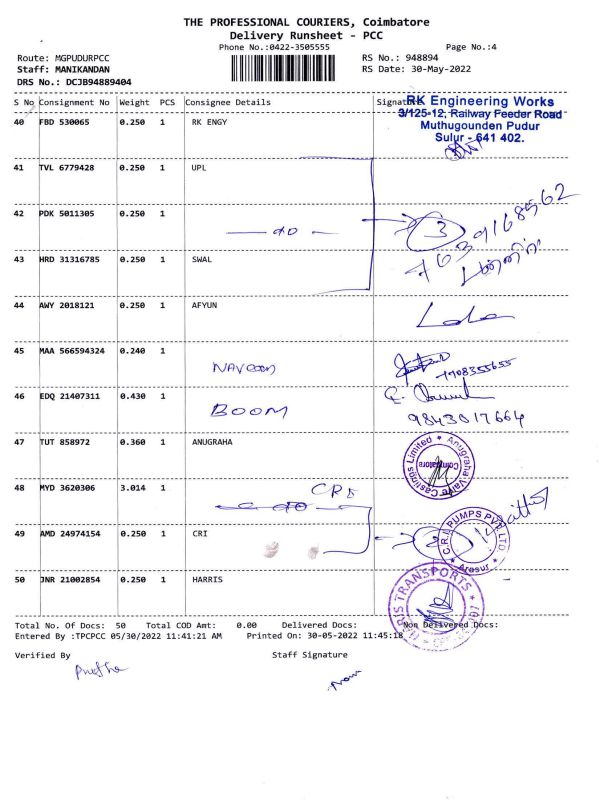 THE PROFESSIONAL COURIERS, Coimbatore
Delivery Runsheet - PCC
Phone No.:0422-3505555 Page No.:4
Route: MGPUDURPCC RS No.: 948894
Staff: MANIKANDAN RS Date: 30-May-2022
DRS No.: DCJB94889404
S No Consignment No Weight PCS Consignee Details Signature
RK Engineering Works
3/125-12, Railway Feeder Road
Muthugounden Pudur
Sulur - 641 402.
40 FBD 530065 0.250 1 RK ENGY
41 TVL 6779428 0.250 1 UPL
42 PDK 5011305 0.250 1 — do — 3
43 HRD 31316785 0.250 1 SWAL
44 AWY 2018121 0.250 1 AFYUN
45 MAA 566594324 0.240 1 NAVEEN
46 EDQ 21407311 0.430 1 BOOM 9843017664
47 TUT 858972 0.360 1 ANUGRAHA
Anugraha Valve Castings Limited * Coimbatore
48 MYD 3620306 3.014 1 CRI
do
49 AMD 24974154 0.250 1 CRI
C.R.I. PUMPS PVT LTD * Arasur *
50 JNR 21002854 0.250 1 HARRIS
TRANSPORTS
Total No. Of Docs: 50 Total COD Amt: 0.00 Delivered Docs: Non Delivered Docs:
Entered By :TPCPCC 05/30/2022 11:41:21 AM Printed On: 30-05-2022 11:45:18
Verified By Staff Signature